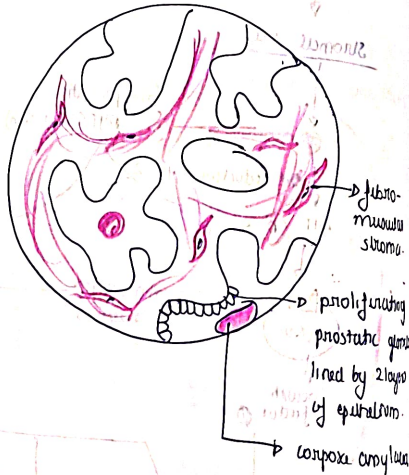 fibro-
muscular
stroma.
prolifirating
prostatic glands
lined by 2 layers
of epithelium.
corpora amylacea